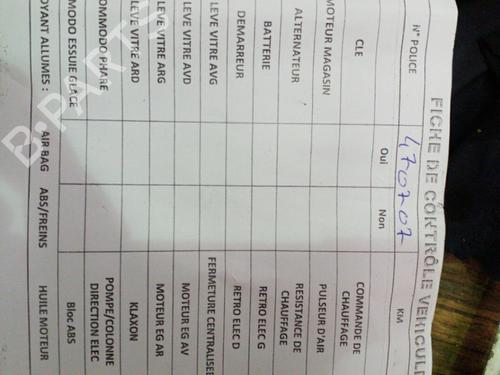 FICHE DE CONTRÔLE VEHICULE
N° POLICE 470707 KM
Oui Non
CLE COMMANDE DE CHAUFFAGE
MOTEUR MAGASIN PULSEUR D'AIR
ALTERNATEUR RESISTANCE DE CHAUFFAGE
BATTERIE RETRO ELEC G
DEMARREUR RETRO ELEC D
LEVE VITRE AVG FERMETURE CENTRALISEE
LEVE VITRE AVD MOTEUR EG AV
LEVE VITRE ARG MOTEUR EG AR
LEVE VITRE ARD KLAXON
OMMODO PHARE POMPE/COLONNE DIRECTION ELEC
MODO ESSUIE GLACE Bloc ABS
OYANT ALLUMES : AIR BAG ABS/FREINS HUILE MOTEUR
B-PARTS